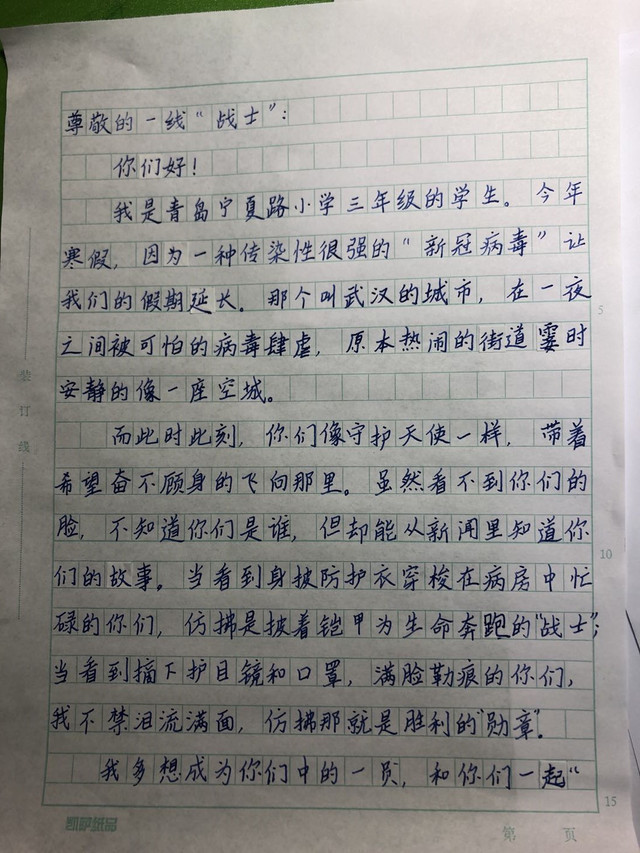 尊敬的一线“战士”：
你们好！
我是青岛宁夏路小学三年级的学生。今年
寒假，因为一种传染性很强的“新冠病毒”让
我们的假期延长。那个叫武汉的城市，在一夜
之间被可怕的病毒肆虐，原本热闹的街道霎时
安静的像一座空城。
而此时此刻，你们像守护天使一样，带着
希望奋不顾身的飞向那里。虽然看不到你们的
脸，不知道你们是谁，但却能从新闻里知道你
们的故事。当看到身披防护衣穿梭在病房中忙
碌的你们，仿拂是披着铠甲为生命奔跑的“战士”；
当看到摘下护目镜和口罩，满脸勒痕的你们，
我不禁泪流满面，仿拂那就是胜利的“勋章”。
我多想成为你们中的一员，和你们一起“
装订线
5
10
15
凯萨纸品
第 页